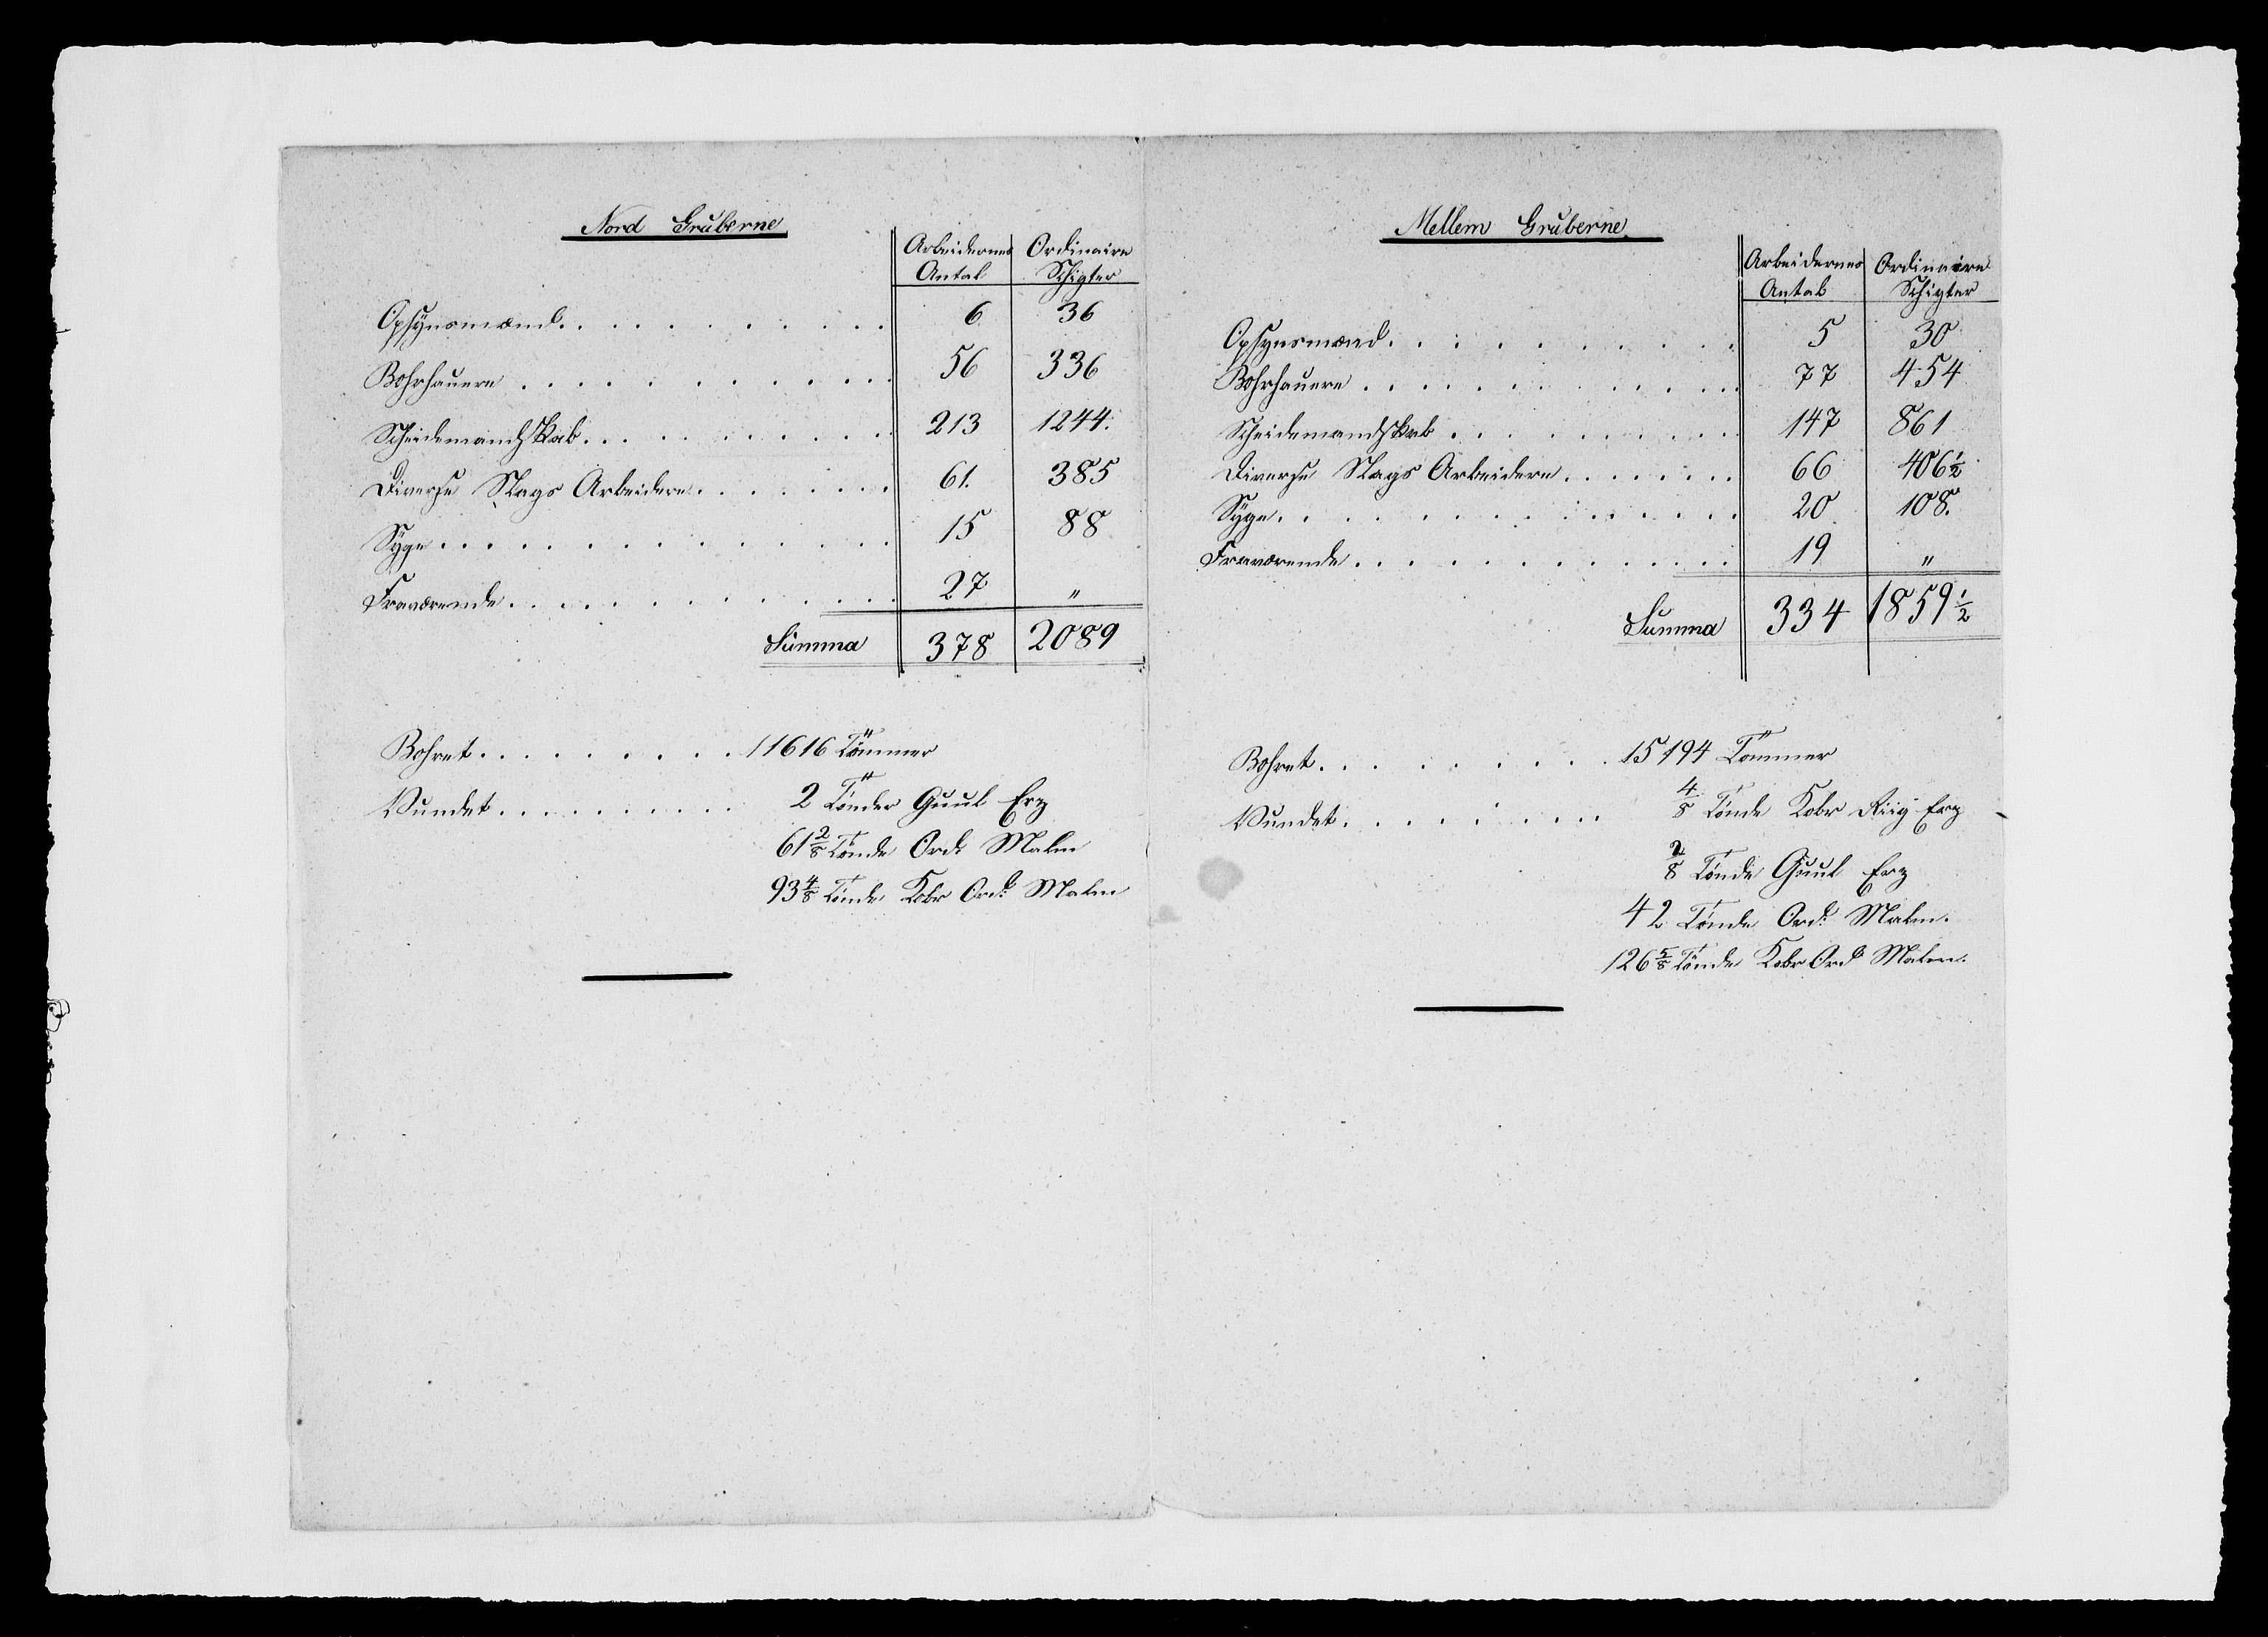 Nord Gruberne
Arbeidernes Ordinaire
Antal Schigter
Opsynsmænd . . . . . . . . 6 36
Bohrhauere . . . . . . . . 56 336
Scheidemandskab . . . . . . . . 213 1244.
Diverse Slags Arbeidere . . . . . . . 61. 385
Syge . . . . . . . . . . . 15 88
Fraværende . . . . . . . . . . 27 "
Summa 378 2089
Bohret . . . . . . . . 11616 Tommer
Vundet . . . . . . . . . 2 Tönder Guul Erz
61 2/8 Tönde Ord: Malm
93 4/8 Tönde Kobr Ord: Malm
Mellem Gruberne
Arbeidernes Ordinaire
Antal Schigter
Opsynsmænd . . . . . . . . . 5 30
Bohrhauere . . . . . . . . . 77 454
Scheidemandskab . . . . . . . . 147 861
Diverse Slags Arbeidere . . . . . . . 66 406 1/2
Syge . . . . . . . . . . . 20 108.
Fraværende . . . . . . . . . . 19 "
Summa 334 1859 1/2
Bohret . . . . . . . . 15194 Tommer
Vundet . . . . . . . . 4/8 Tönde Kobr Riig Erz
2/8 Tönde Guul Erz
42 Tönde Ord: Malm.
126 5/8 Tönde Kobr Ord: Malm.